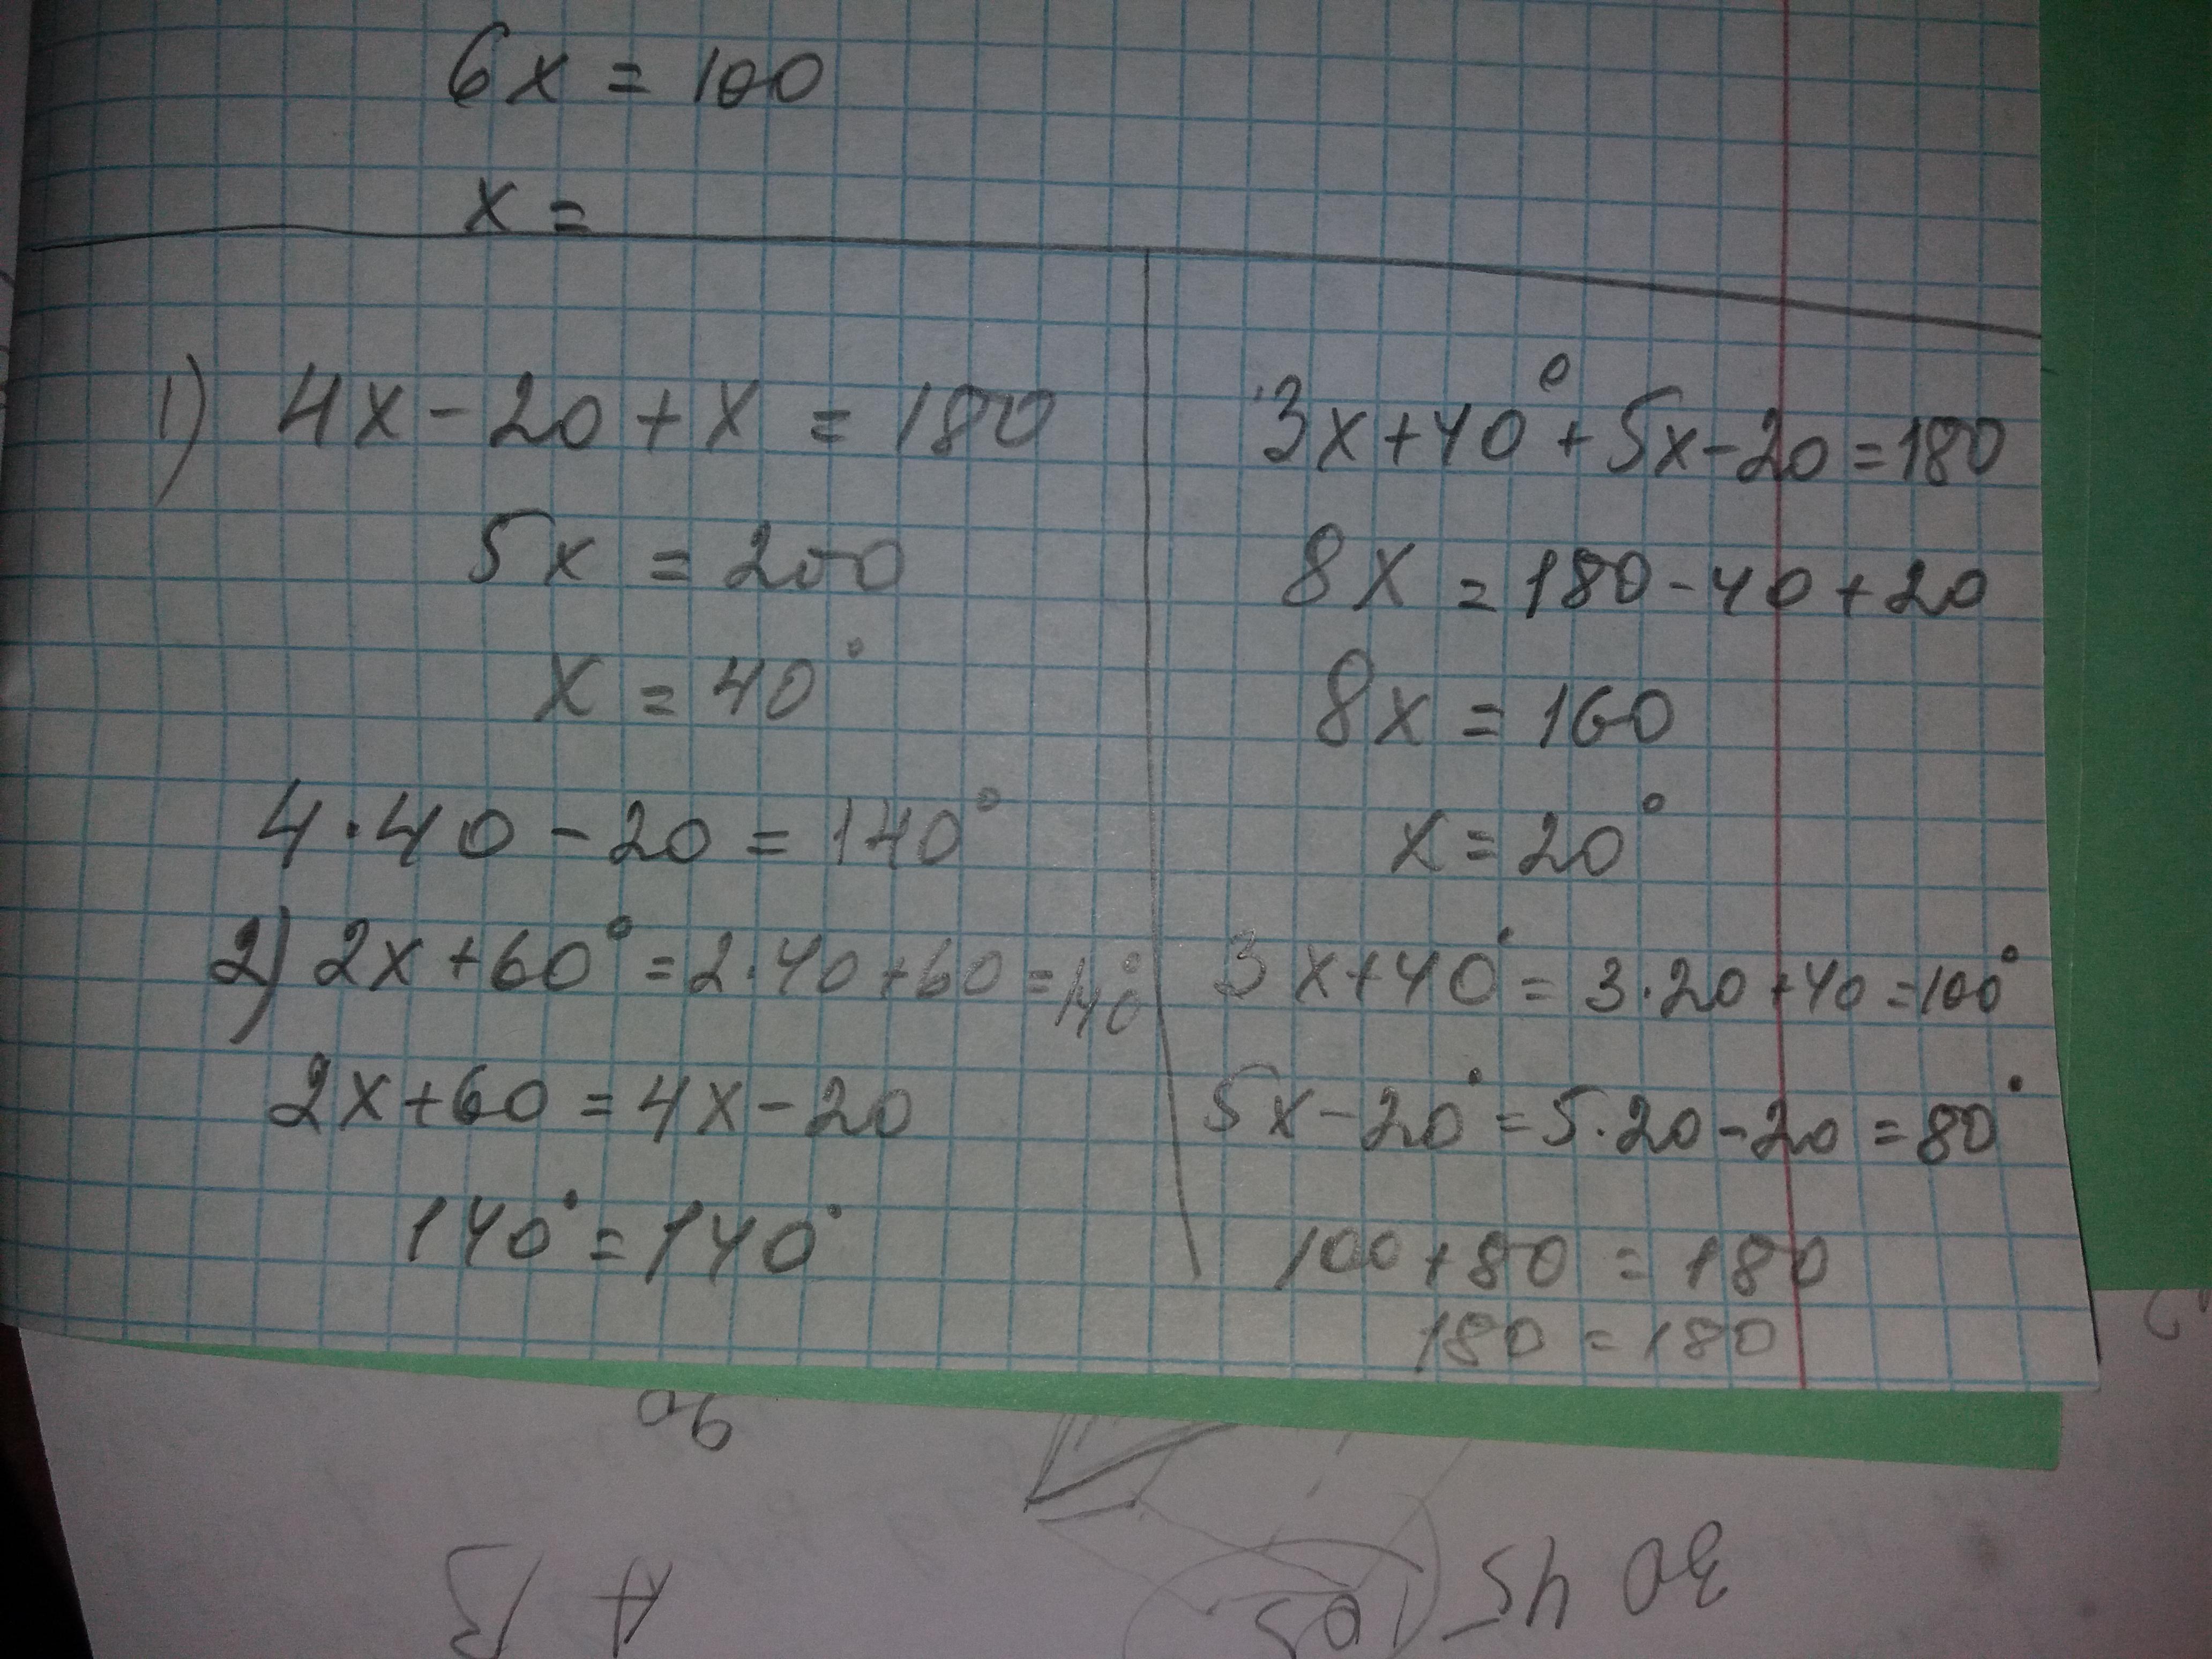 6x = 100
x =
1) 4x - 20 + x = 180
5x = 200
x = 40°
4·40 - 20 = 140°
2) 2x + 60° = 2·40 + 60 = 140°
2x + 60 = 4x - 20
140° = 140°
3x + 40° + 5x - 20 = 180
8x = 180 - 40 + 20
8x = 160
x = 20°
3x + 40° = 3·20 + 40 = 100°
5x - 20° = 5·20 - 20 = 80°
100 + 80 = 180
180 = 180
90
30 45 105
A B